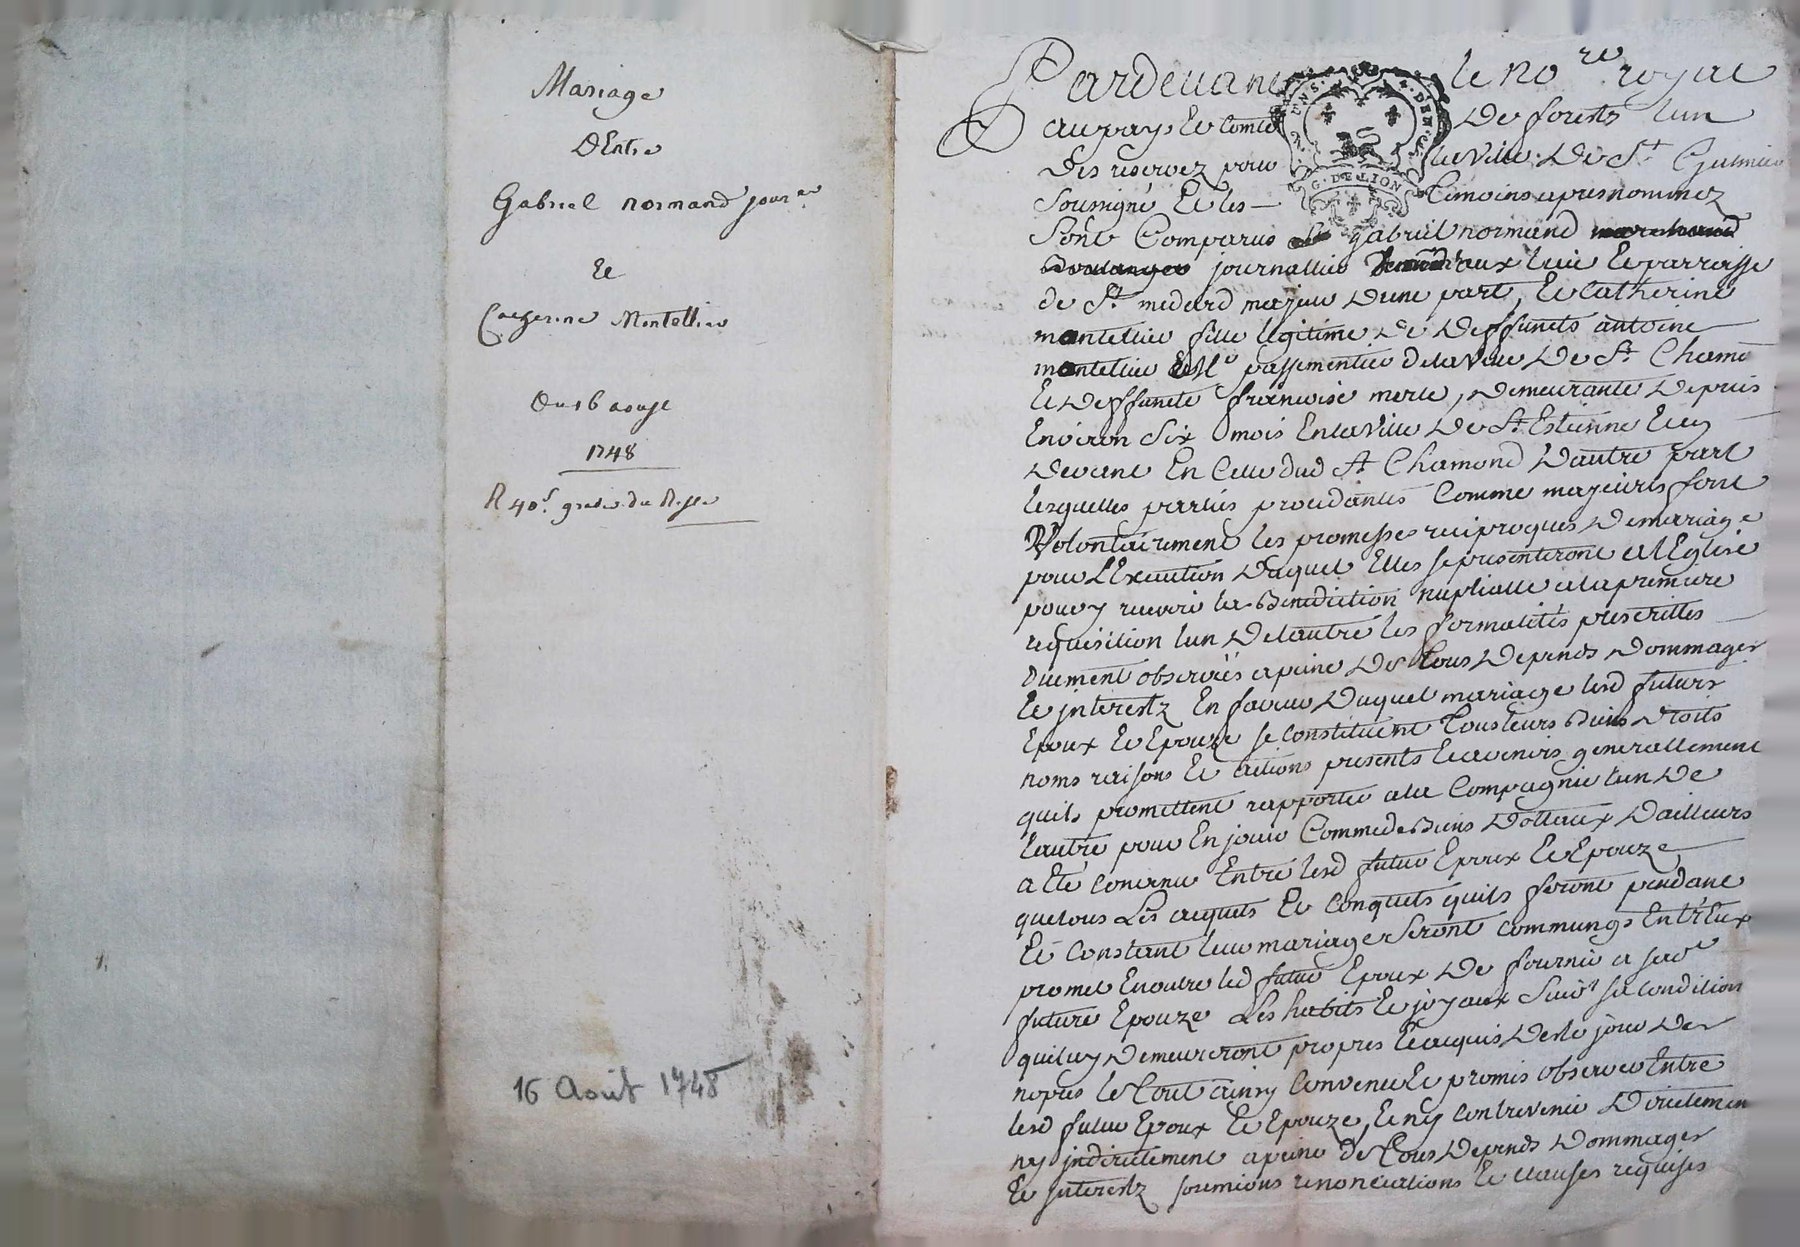 Mariage
D'Entre
Gabriel normand jour.er
Et
Catherine Montellier
Du 16 aoust
1748
R 40s
16 Août 1748
Pardevant le no.re royal
au pays et Comté De forests lun
Des reservez pour la Ville De St. Galmier
Soussigné Et les temoins apres nommez
Sont Comparus gabriel normand marchand
Boulanger journallier aux lieu et parroisse
de St. medard majeur Dune part, Et Catherine
montellier fille legitime De Deffuncts antoine
montellier Me passementier De la Ville De St. Chamond
Et Deffuncte francoise merle, Demeurante Depuis
Environ Six mois En la Ville De St. Estienne Et cy
Devant En Celle dud St. Chamond Dautre part
lesquelles parties procedantes Comme majeures font
Volontairement les promesses reciproques De mariage
pour L'Execution Duquel Elles se presenteront a l'Eglise
pour y recevoir la Benediction nuptialle a la premiere
requisition lun De lautre les formalités prescrittes
Duement observées a peine De tous Depends Dommages
Et jnterestz En faveur Duquel mariage lesd futurs
Epoux Et Epouze se constituent Tous leurs Biens Droits
noms raisons Et actions presents Et avenirs generallement
quils promettent rapporter a la Compagnie lun De
lautre pour En jouir Comme de Biens Dottaux Dailleurs
a Eté convenu Entre lesd futur Epoux Et Epouze
que tous Les acquets Et Conquets quils feront pendant
Et Constant leur mariage Seront communs Entr'Eux
promet En outre led futur Epoux De fournir a sad.e
future Epouze Les habits Et joyaux Suiv.t sa condition
qui luy Demeureront propres Et acquis Des le jour Des
nopces le Tout ainsy Convenu Et promis observer Entre
lesd futur Epoux Et Epouze, Et ny contrevenir Directement
ny jndirectement a peine de Tous Depends Dommages
Et jnterestz soumions renonciations Et clauses requises